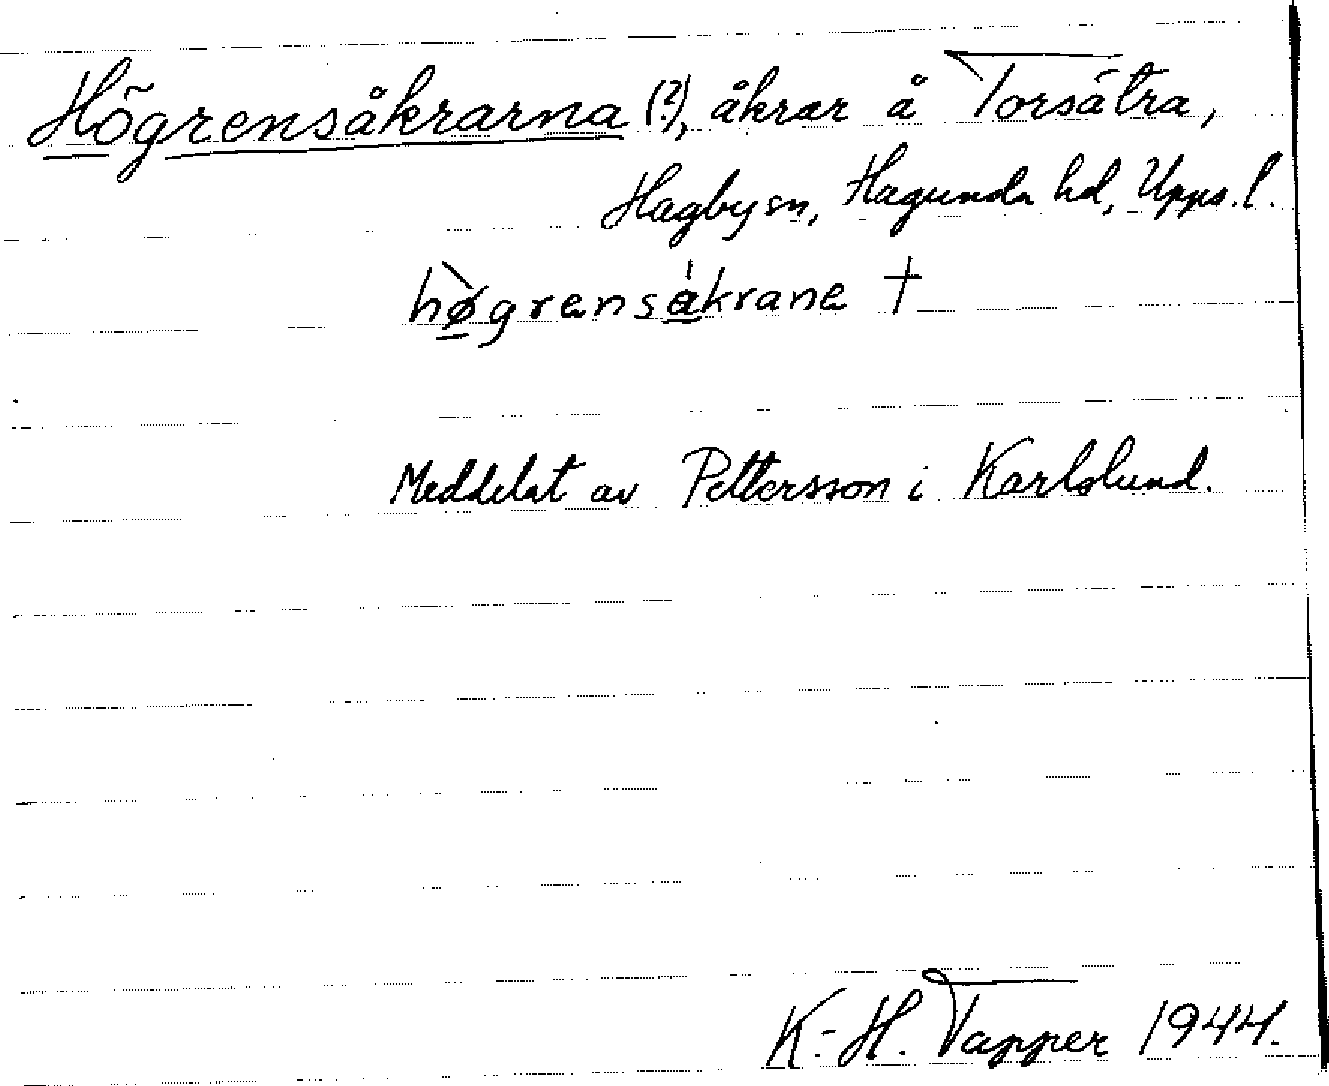 Högrensåkrarna (?), åkrar å Torsätra,
Hagby sn, Hagunda hd, Upps. l.
hø̀grensåkrane †
Meddelat av Pettersson i Karlslund.
K.-H. Tapper 1944.